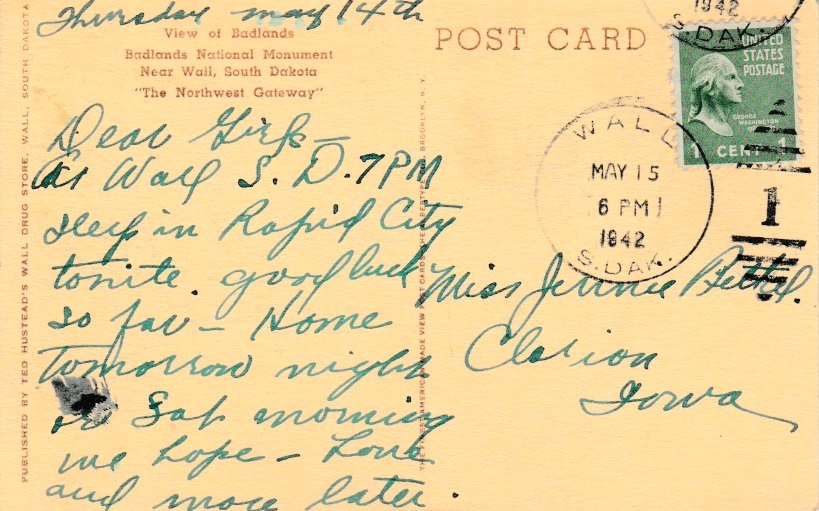 Thursday may 14th
View of Badlands
Badlands National Monument
Near Wall, South Dakota
"The Northwest Gateway"
Dear Girls -
At Wall S. D. 7 PM
sleep in Rapid City
tonite good luck
so far - Home
tomorrow night
or Sat morning
we hope - Love
and more later.
PUBLISHED BY TED HUSTEAD'S WALL DRUG STORE, WALL, SOUTH DAKOTA
POST CARD
1942
S. DAK.
UNITED
STATES
POSTAGE
GEORGE
WASHINGTON
1 CENT 1
WALL
MAY 15
6 PM
1942
S. DAK.
1
Miss Jennie
Clarion
Iowa